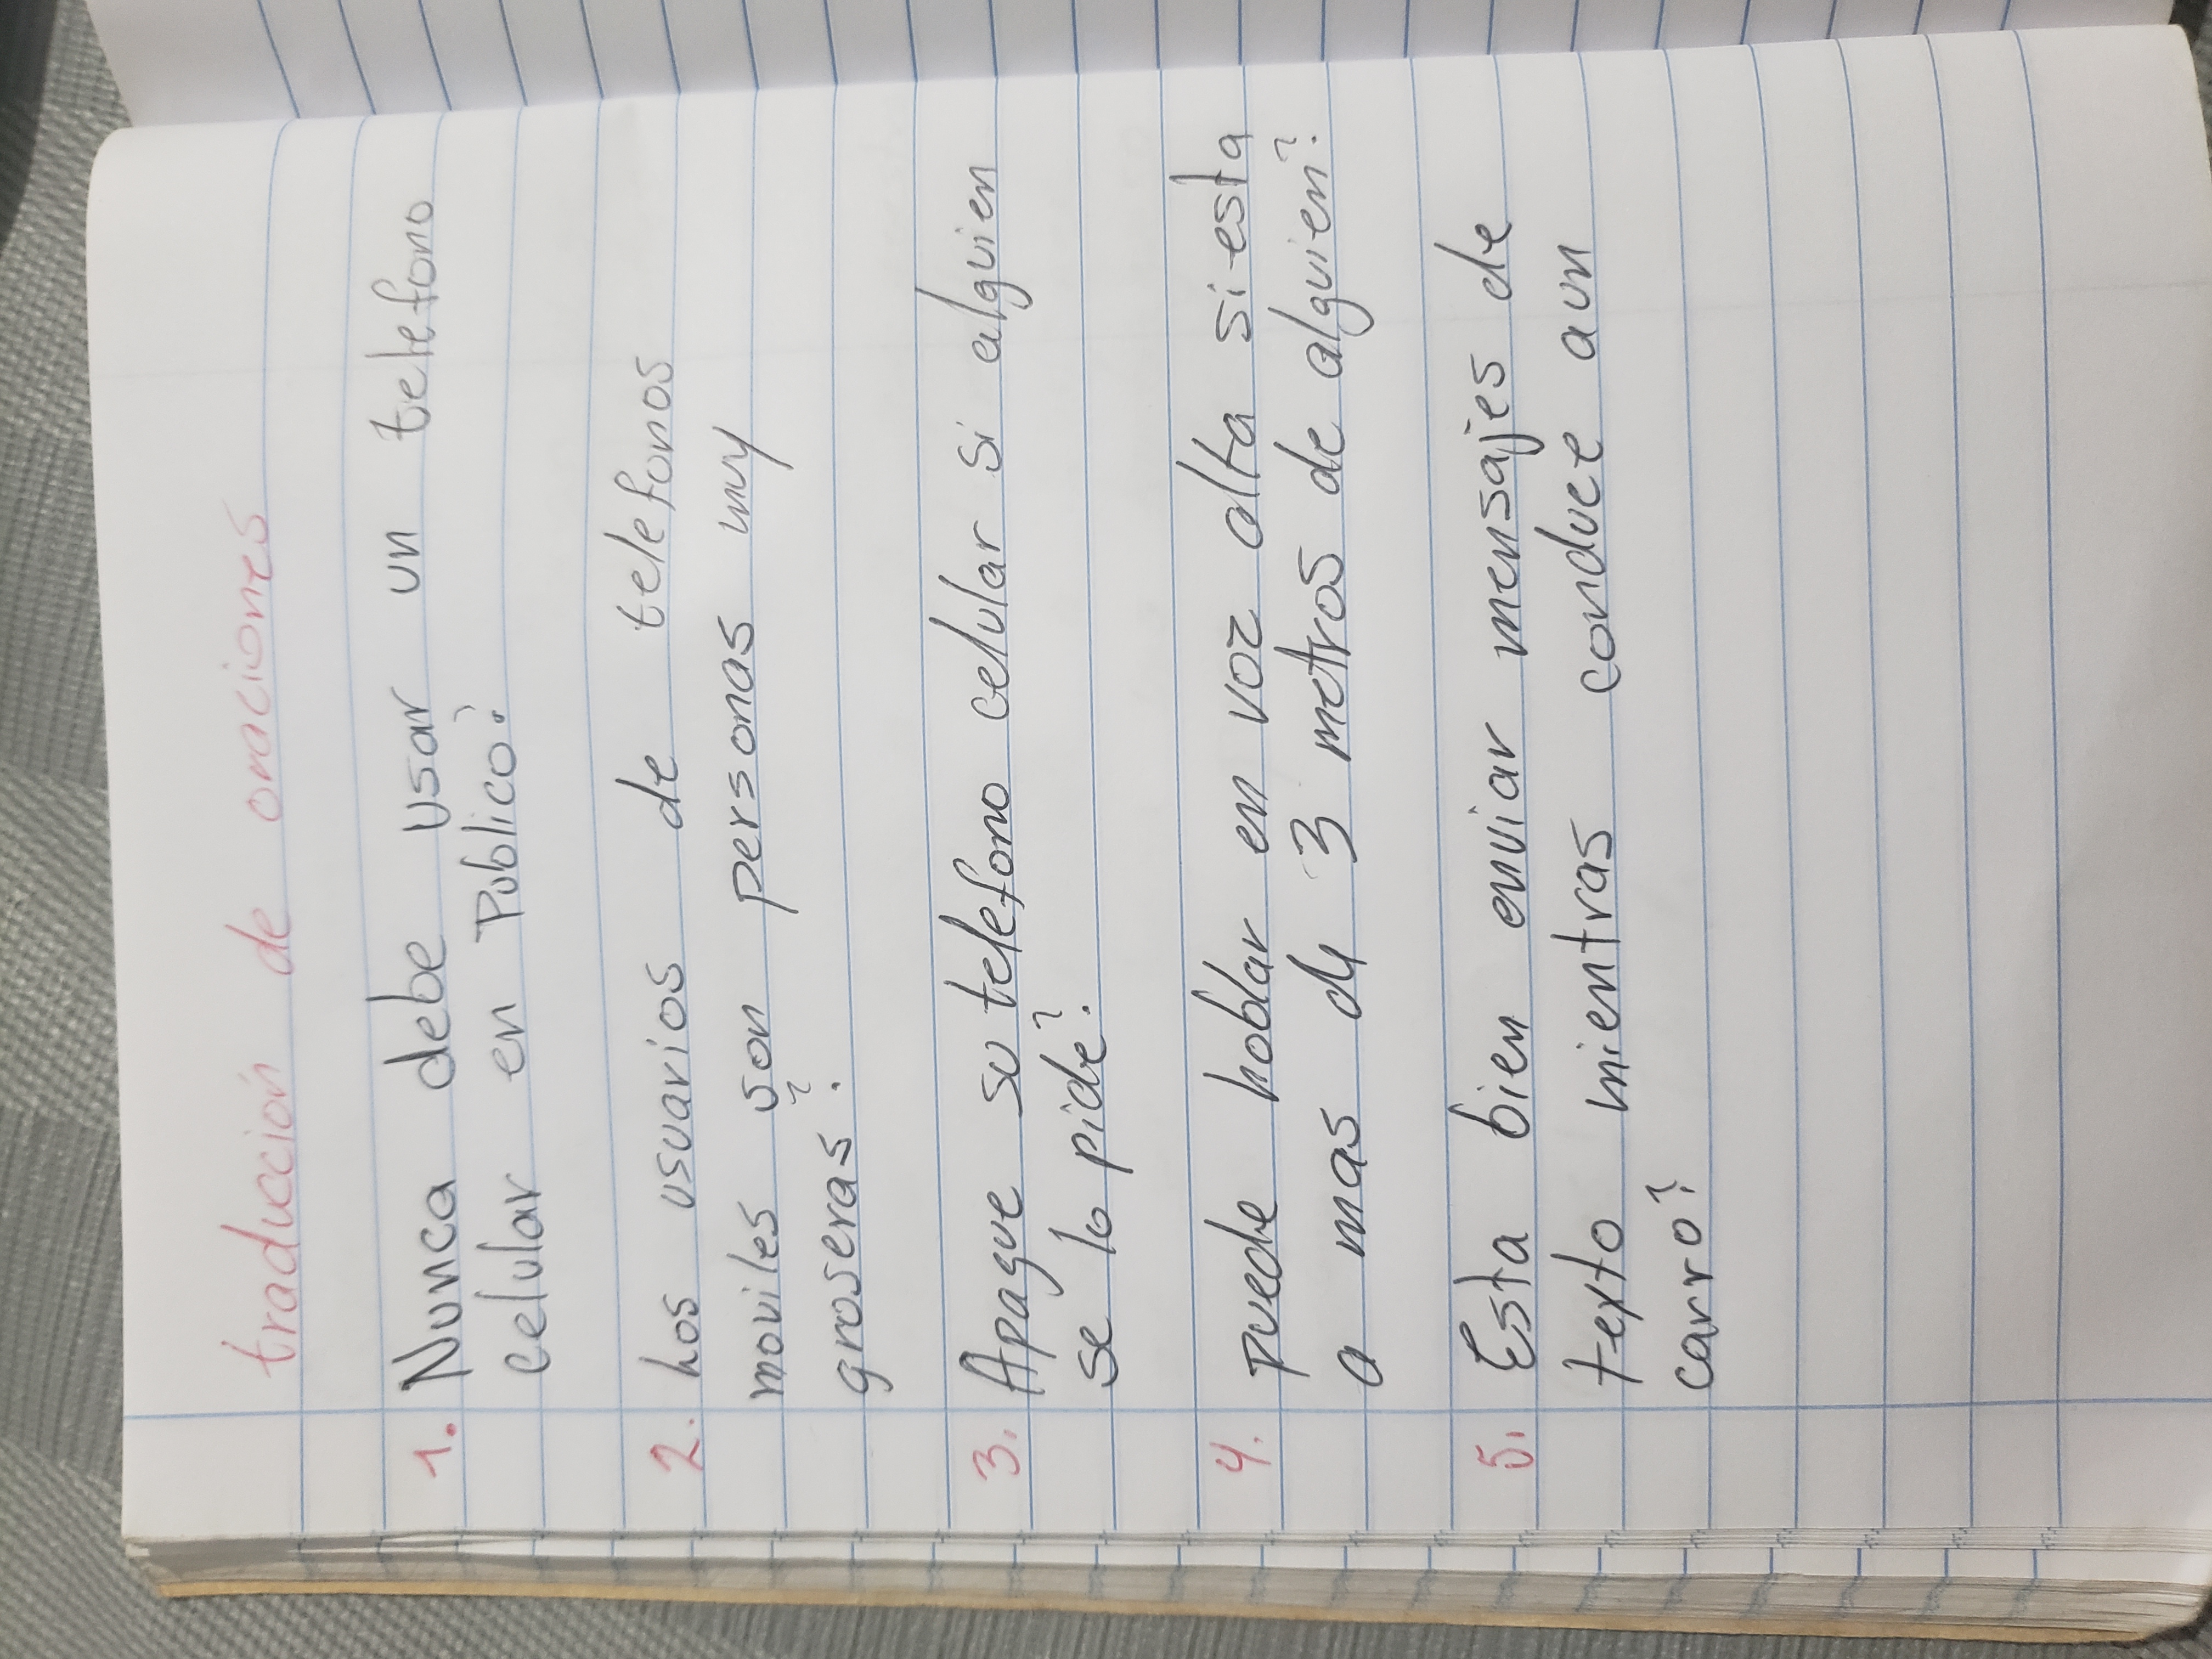 traducción de oraciones
1. Nunca debe usar un telefono
celular en Publico?
2. Los usuarios de telefonos
moviles son personas muy
groseras?
3. Apague su telefono celular si alguien
se lo pide?
4. puede hablar en voz alta si esta
a mas de 3 metros de alguien?
5. Esta bien enviar mensajes de
texto mientras conduce a un
carro?